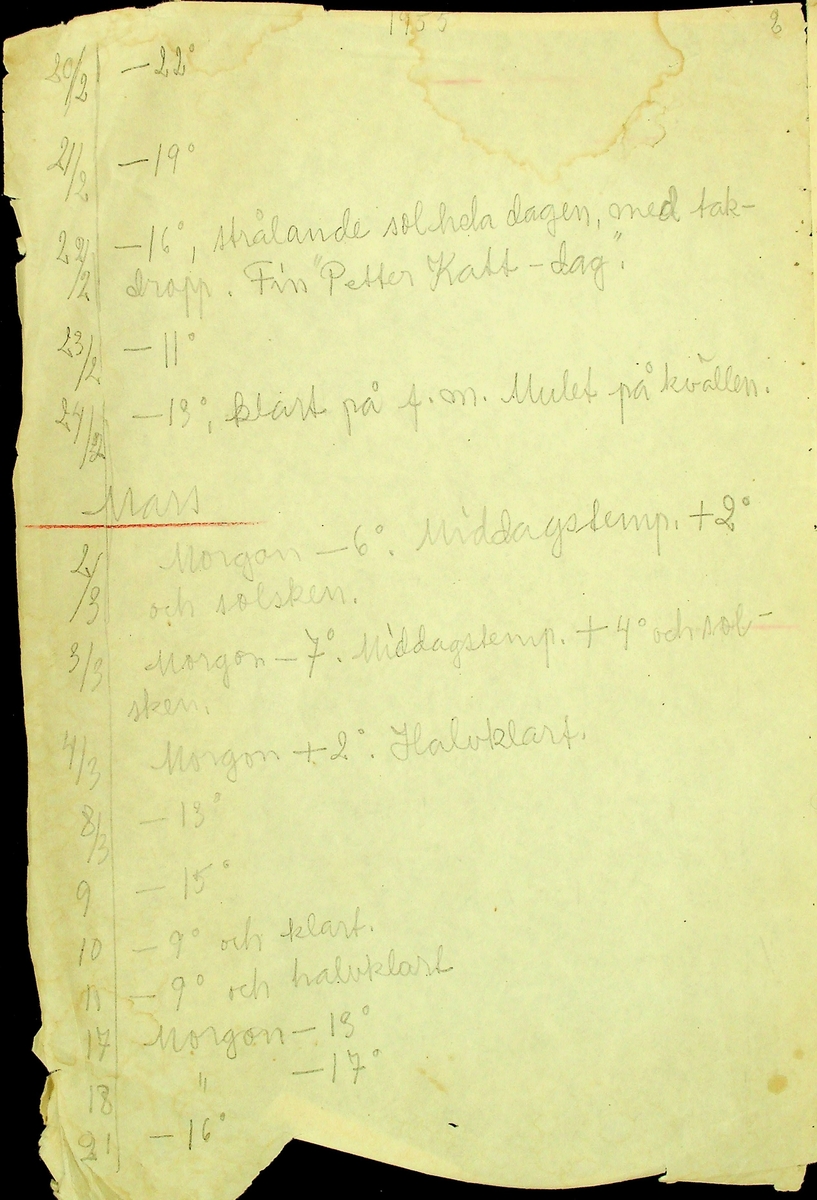 1955 2
20/2 —22°
21/2 —19°
22/2 —16°, strålande sol hela dagen, med tak-
dropp. Fin "Petter Katt-dag".
23/2 —11°
24/2 —13°, klart på f.m. Mulet på kvällen.
Mars
2/3 Morgon —6°. Middagstemp. +2°
och solsken.
3/3 Morgon —7°. Middagstemp. +4° och sol-
sken.
4/3 Morgon +2°. Halvklart.
8/3 —13°
9 —15°
10 —9° och klart.
11 —9° och halvklart
17 Morgon —13°
18 " —17°
21 —16°